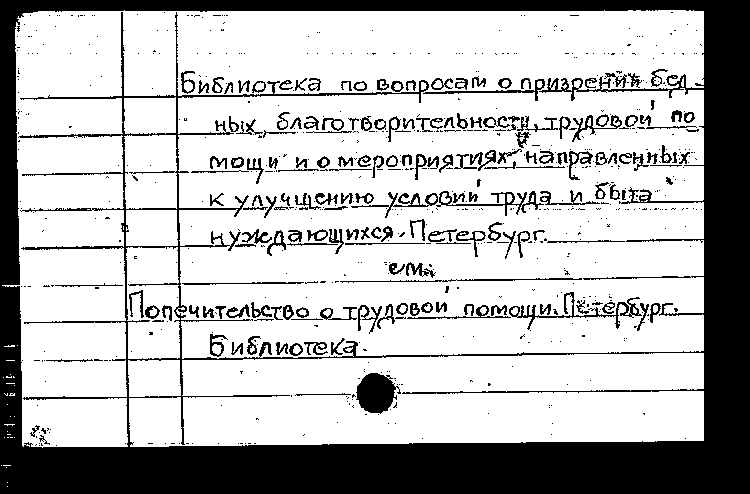 Библиотека по вопросам о призрении бед-
ных, благотворительности, трудовой по
мощи и о мероприятиях, направленных
к улучшению условий труда и быта
нуждающихся. Петербург.
см.
Попечительство о трудовой помощи. Петербург.
Библиотека.